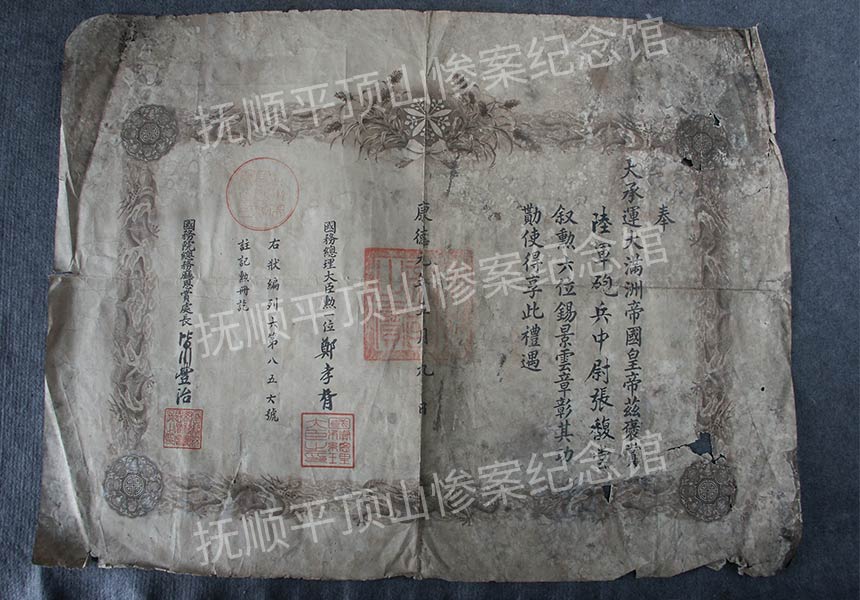 奉
大承運大滿洲帝國皇帝茲褒賞
陸軍砲兵中尉張馥
敘勲六位錫景雲章彰其功
勛使得享此禮遇
康德元年 月九日
國務總理大臣勲一位 鄭孝胥
右狀編列六第八五六號
註記勲冊訖
國務院總務廳恩賞處長 皆川豐治
抚顺平顶山惨案纪念馆
抚顺平顶山惨案纪念馆
抚顺平顶山惨案纪念馆